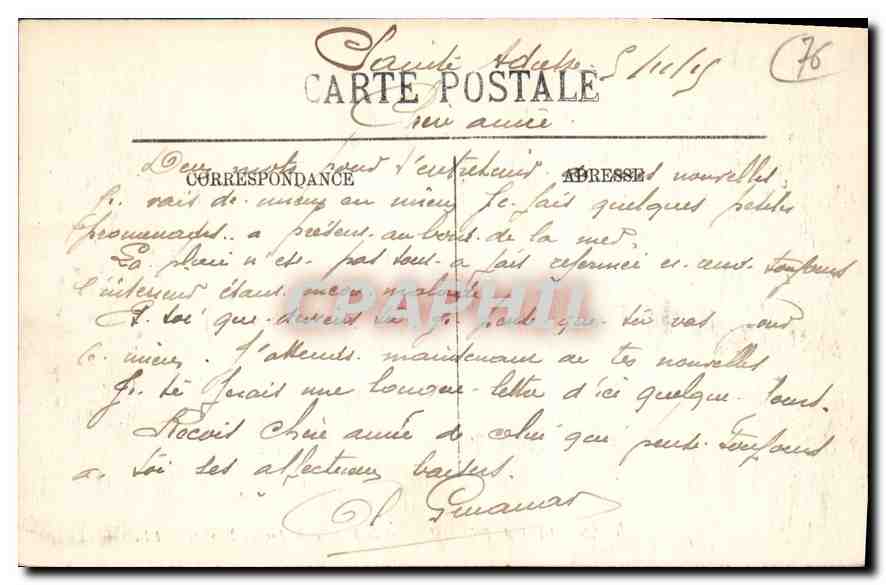 Sainte Adresse 5/11/15
76
CARTE POSTALE
Chere amie
Deux mots pour t'entretenir de mes nouvelles
CORRESPONDANCE
ADRESSE
Je vais de mieux en mieux Je fais quelques petites
promenades. a present au bord de la mer,
La plaie n'est pas tout a fait refermée et
l'interieur étant encore malade
CPAPHIL
Et toi que deviens tu je pense que tu vas pour
le mieux. J'attends maintenant de tes nouvelles
Je te ferais une longue lettre d'ici quelque jours.
Recois chère amie de celui qui pense toujours
a toi ses affectueux baisers.